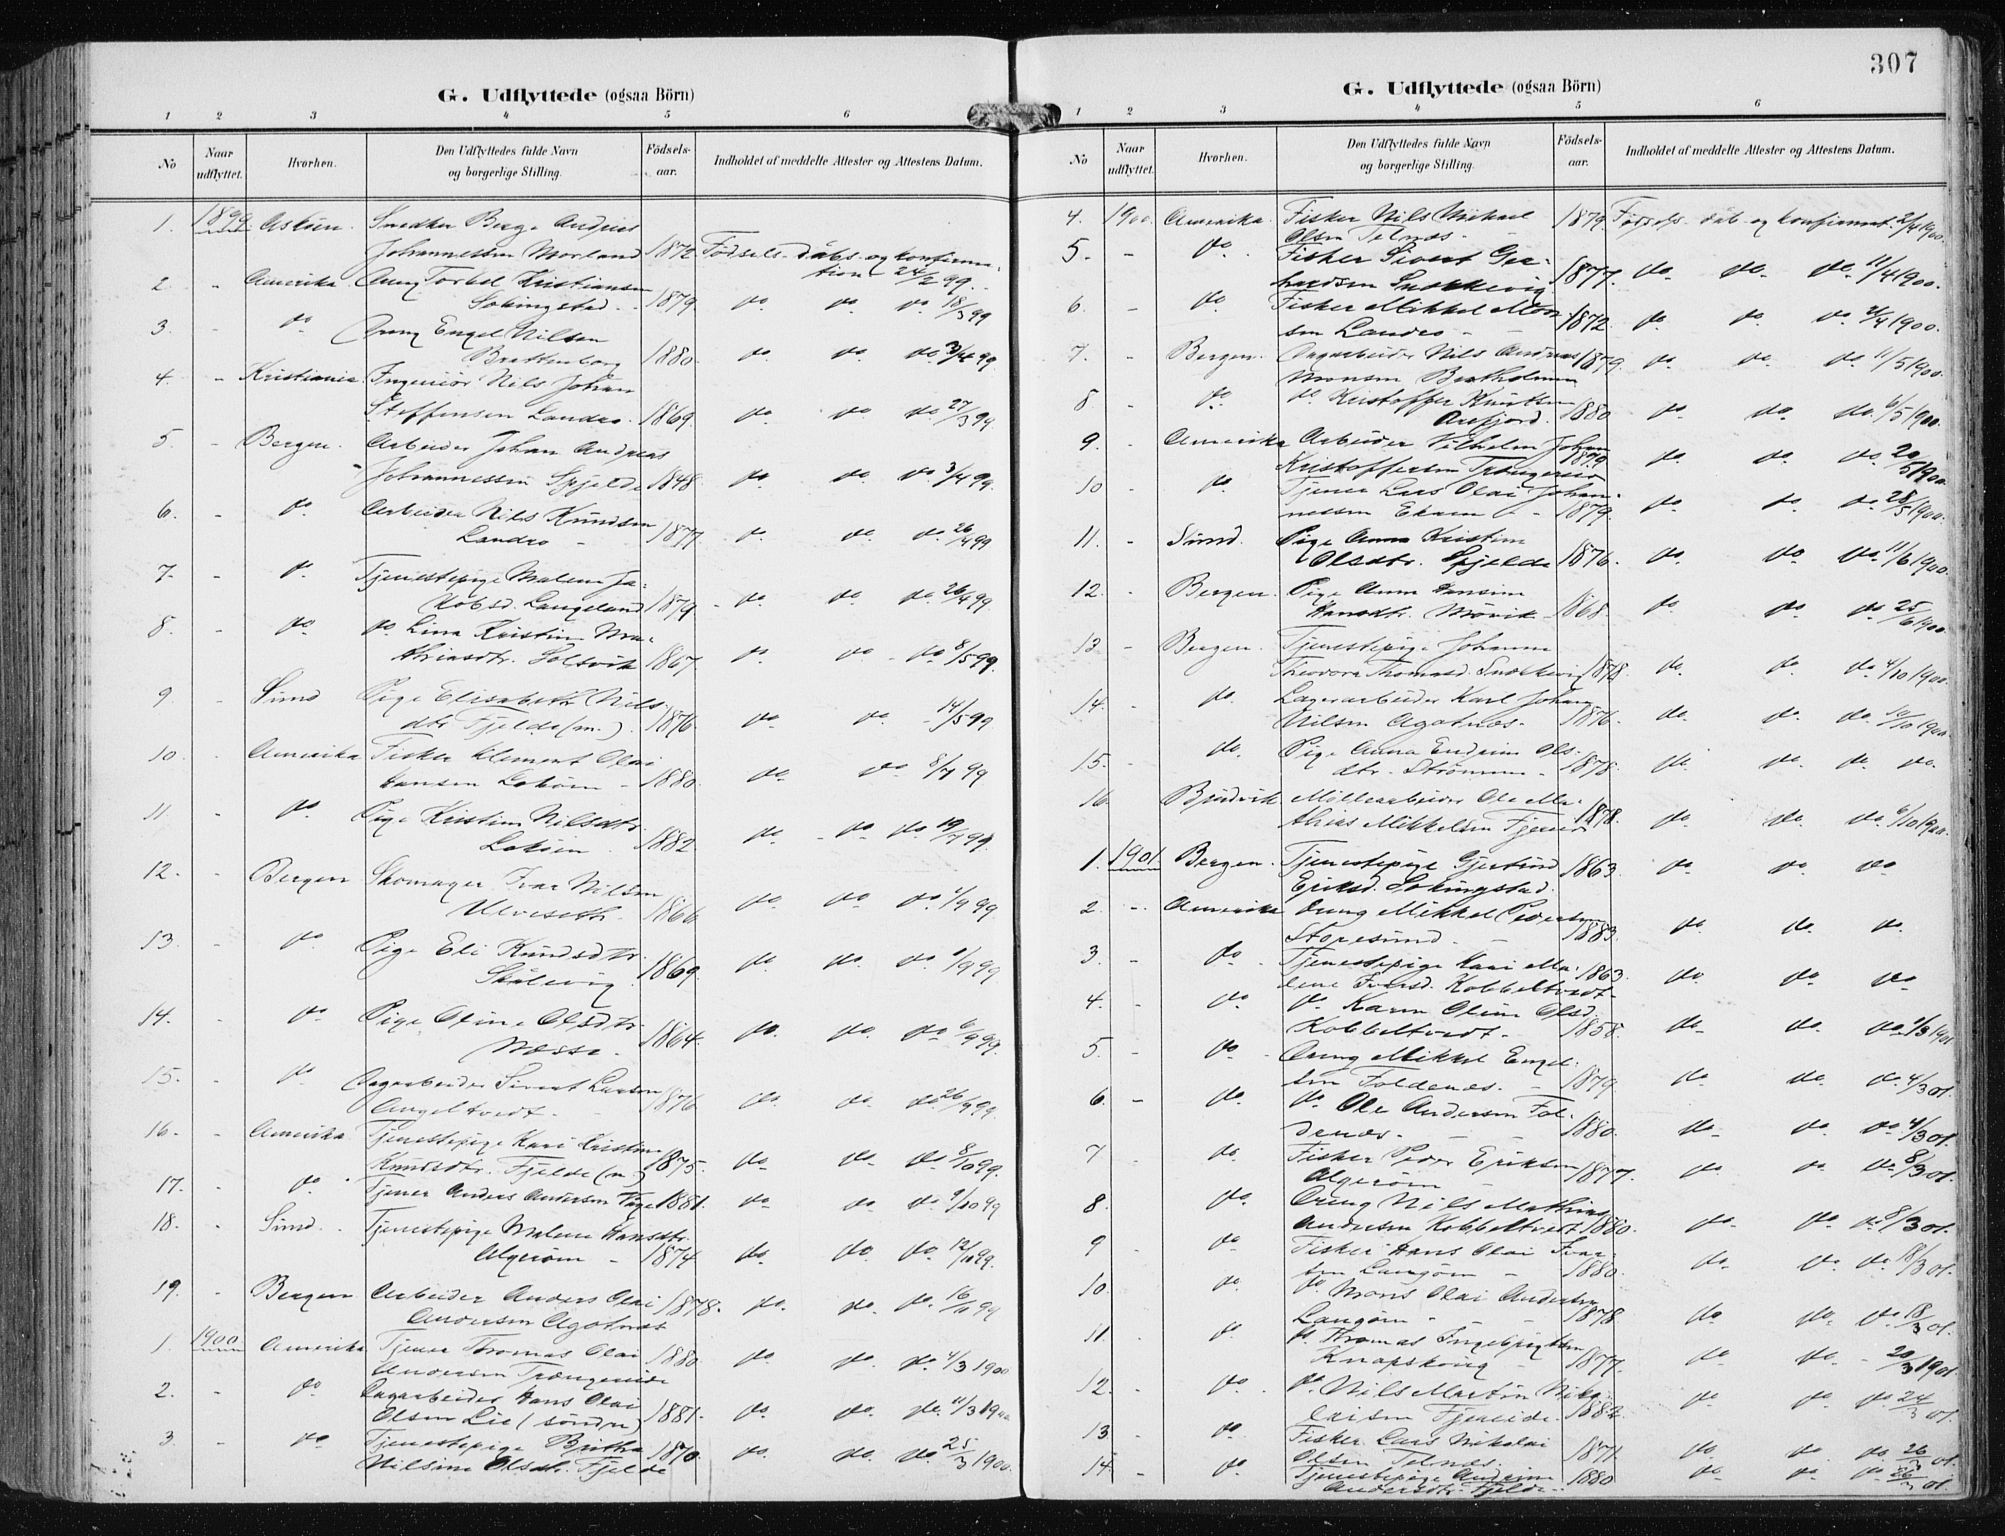 307
G. Udflyttede (ogsaa Börn)
1 2 3 4 5 6
No Naar udflyttet. Hvorhen. Den Udflyttedes fulde Navn og borgerlige Stilling. Födsels-aar. Indholdet af meddelte Attester og Attestens Datum.
1. 1899 Askøen. Snedker Berge Andreas
Johannessen Morland 1872 Fødsels- dåbs- og konfirma-
tion 24/2 99.
2. - Amerika Ung Torkel Kristiansen
Solsingstad. 1879. do do do 18/3 99
3. do Dreng Engel Nilsen
Brattenborg 1880. do. do. do. 3/4 99
4. - Kristiania Ingeniör Nils Johan
Steffensen Landro. 1869. do. do. do. 27/3 99.
5. - Bergen. Arbeider Johan Andreas
Johannessen Spjeld 1848. do. do. do. 3/4 99.
6. - do Arbeider Nils Knudsen
Landro - 1877 do. do. do. 26/4 99
7. - do. Tjenestepige Malene Ja-
kobsd. Langeland 1879. do. do. do. 26/4 99
8. - do do Lina Kristine Ma-
thiasdtr. Soltvik 1867. do do - do 8/5 99.
9 - Sund Pige Elisabeth Nils-
dtr Fjelde (m.) 1876. do do. 14/5 99
10. - Amerika Fisker Klement Olai
Hansen Lokøen - 1880. do. do. 8/7 99
11. - do Pige Kristine Nilsdtr.
Lokøen 1882. do - do do. 19/7 99.
12. - Bergen Skomager Ivar Nilsen
Ulveseth. 1866 do do. do. 1/9 99
13. - do Pige Eli Knudsdtr.
Skålevig. 1869. do. do. do. 1/9 99
14. - do Pige Oline Olsdtr.
Næsse. 1864. do. do. do 6/9 99.
15. - do Dagarbeider Sivert Larsen
Angeltvedt. 1876 do. do. do. 26/9 99.
16. - Amerika. Tjenestepige Kari Kristine
Knudsdtr. Fjelde (m.) 1875. do do. do. 8/10 99.
17. - do. Tjener Anders Andersen Våge 1881. do - do. do. 9/10 99
18. - Sund. Tjenestepige Malene Hansdtr.
Algerøen - 1874 do. do. do. 12/10 99.
19. - Bergen Arbeider Anders Olai
Andersen Agotnæs 1878. do. do. do. 16/11 99
1. 1900 Amerika Tjener Thomas Olai
Andersen Trængereide 1880. do do. do. 4/3 1900
2. - do Dagarbeider Hans Olai
Olsen Lie (söndre) 1881. do do. do. 11/3 1900
3 - do Tjenestepige Brithe
Nilsine Olsdtr. Fjelde 1870. do. do. do. 25/3 1900.
G. Udflyttede (ogsaa Börn)
1 2 3 4 5 6
No Naar udflyttet. Hvorhen. Den Udflyttedes fulde Navn og borgerlige Stilling. Födsels-aar. Indholdet af meddelte Attester og Attestens Datum.
4. 1900. Amerika. Fisker Nils Mikael
Olsen Telnæs. 1879. Fødsels- dåb- og konfirmat. 2/4 1900.
5. - do. Fisker Sivert Ger-
hardsen Snekkevig 1877. do do. do. 11/4 1900.
6 - do. Fisker Mikkel Mon-
sen Landro - 1872. do. do. do. 2/4 1900.
7. - Bergen. Dagarbeider Nils Andreas
Monsen Bratholmen 1879. do. do. do. 11/5 1900.
8 - do. do. Kristoffer Knudsen
Arefjord. 1880. do. do. do. 6/5 1900.
9. - Amerika Arbeider Vilhelm Johan
Kristoffersen Trængereid 1879. do do. do. 20/5 1900.
10 - do Tjener Lars Olai Johan-
nessen Ekren - 1879. do. do. do. 28/5 1900.
11. - Sund. Pige Anna Kristine
Olsdtr. Spjelde 1876. do. do do. 11/6 1900.
12. - Bergen. Pige Anna Hansine
Hansdtr. Møvik. 1868. do. do. do 25/6 1900.
13 - Bergen. Tjenestepige Johanne
Theodora Thomasd. Snekkevig 1878. do. do do. 4/10 1900.
14. - do. Lagerarbeider Karl Johan
Nilsen Agotnæs. 1876. do. do. do. 10/10 1900.
15. - do. Pige Anna Endrine Ols-
dtr. Strömme - 1878. do. do. do. do.
16. Bjudvik Møllearbeider Ole Ma-
thias Mikkelsen Fjereid 1878. do. do. do. 6/10 1900.
1. 1901. Bergen. Tjenestepige Gjertrud
Eriksd. Solsingstad. 1863. do do do
2. - Amerika Dreng Mikkel Pedersen
Storesund. - 1883. do. do. do.
3 - do. Tjenestepige Kari Ma-
lene Ivarsd. Kobbeltvedt 1863. do. do. do
4. - do do Karen Oline Olsd.
Kobbeltvedt. - 1858. do. do. do. 1/3 1901
5. - do. Dreng Mikkel Engel-
sen Foldenæs. - 1879 do. do. do. 4/3 01.
6. - do. do Ole Andersen Fol-
denæs. - 1880. do. do. do. 4/3 01.
7 - do. Fisker Peder Eriksen
Algerøen 1877. do. do. do. 8/3 01.
8 do. Dreng Nils Mathias
Andersen Kobbeltvedt 1880. do. do. do 8/3 01.
9 - do Fisker Hans Olai Ivar-
sen Langøen - 1880. do. do. do. 18/3 01.
10. do. do Mons Olai Andersen
Langøen - 1878 do. do. do. 18/3 01.
11. - do. do. Thomas Ingebrigtsen
Knapskvig 1877. do. do. - 20/3 1901
12. - do. do. Nils Martin Niko-
laisen Fjereide. 1882. do. do. do 24/3 01.
13 - do. Fisker Lars Nikolai
Olsen Telnæs. 1871. do. do. do. 26/3 01.
14. - do. Tjenestepige Andrine
Andersdtr. Fjelde. 1880 do. do. do 26/3 01.